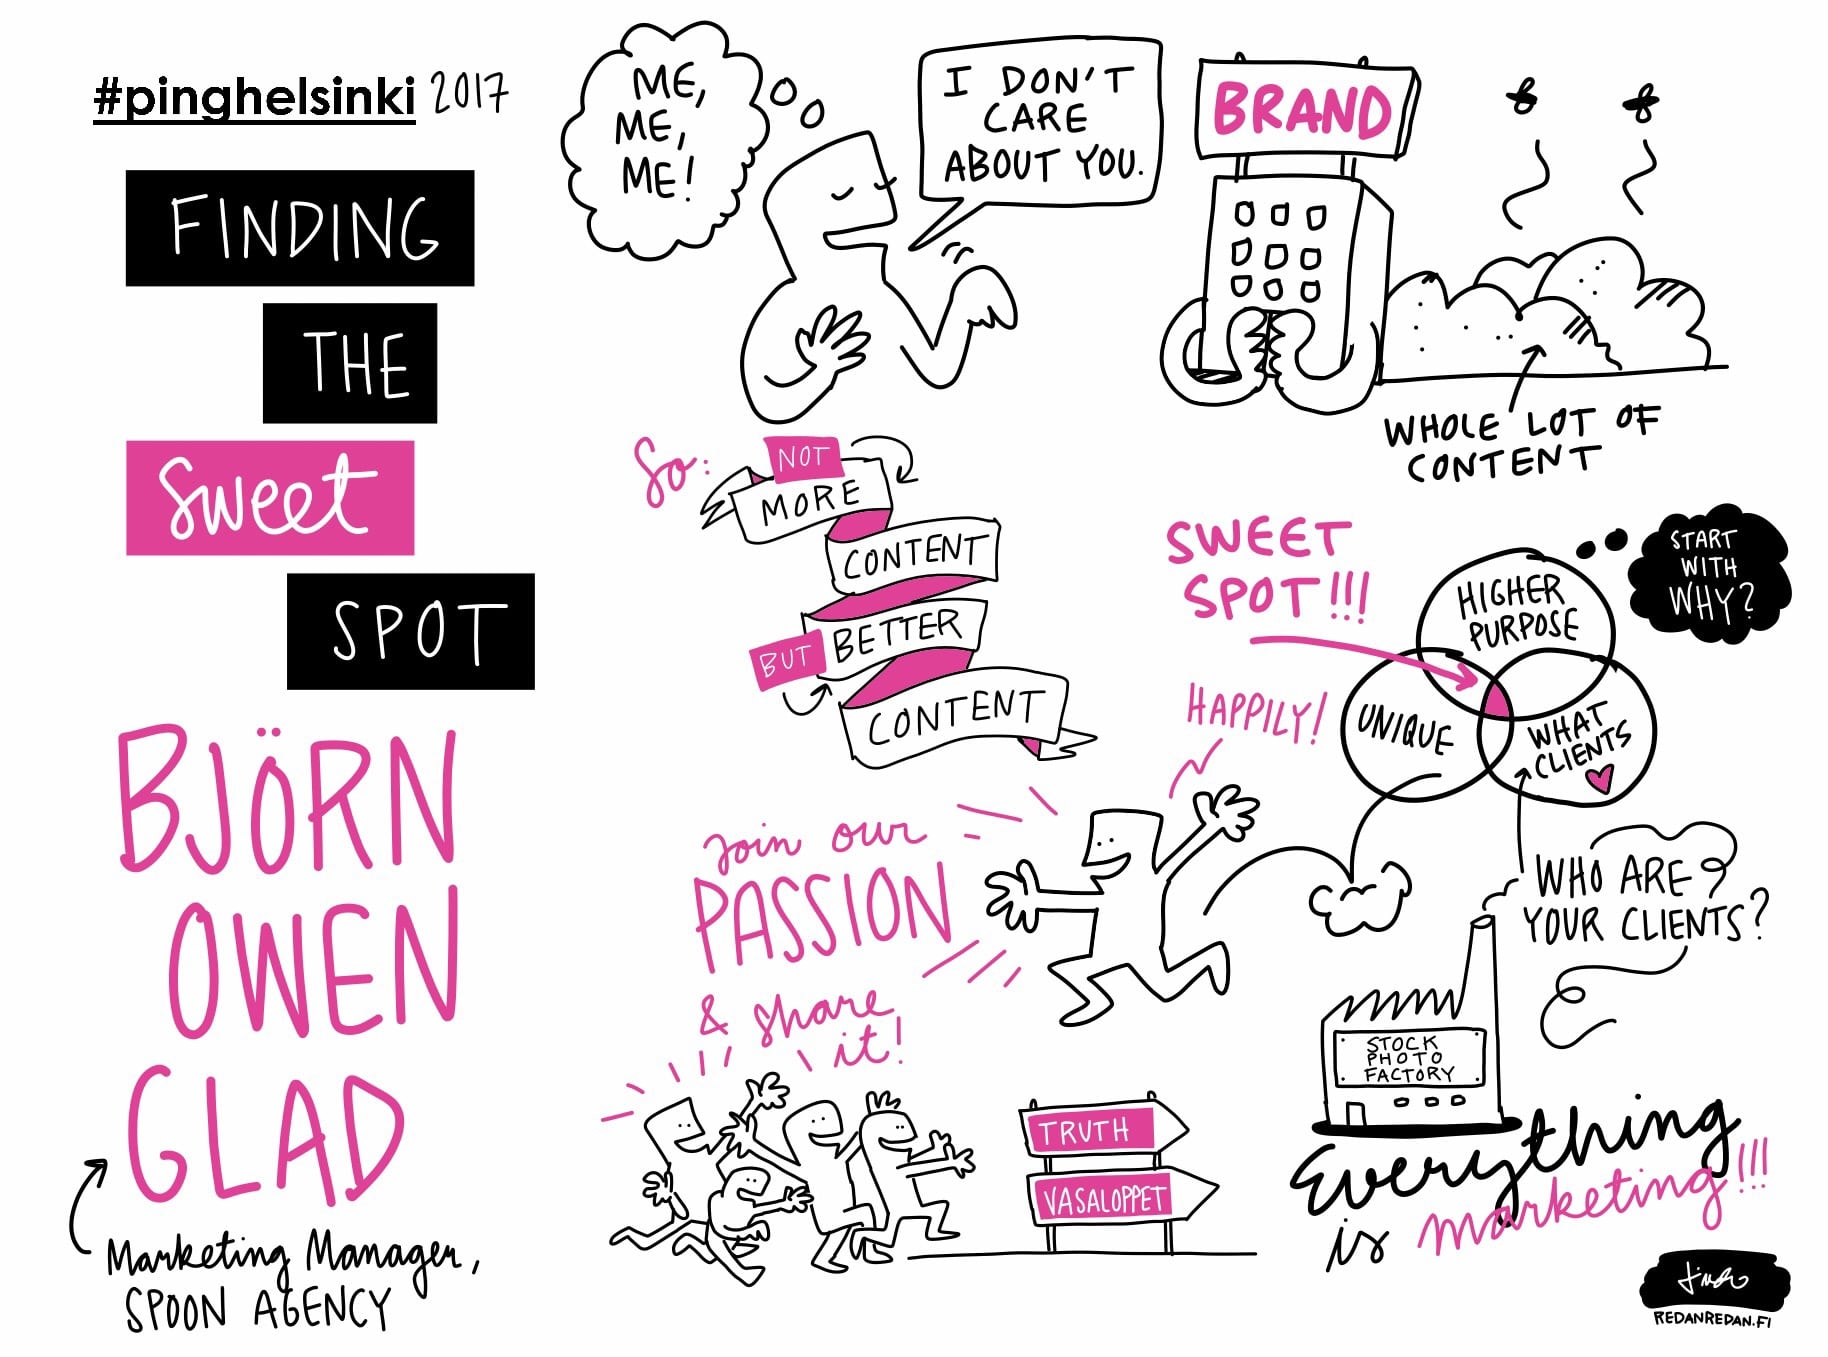 #pinghelsinki 2017
FINDING
THE
Sweet
SPOT
BJÖRN
OWEN
GLAD
Marketing Manager,
SPOON AGENCY
ME,
ME,
ME!
I DON'T
CARE
ABOUT YOU.
BRAND
WHOLE LOT OF
CONTENT
So:
NOT
MORE
CONTENT
BUT
BETTER
CONTENT
SWEET
SPOT!!!
START
WITH
WHY?
HIGHER
PURPOSE
UNIQUE
WHAT
CLIENTS
HAPPILY!
Join our
PASSION
& share
it!
WHO ARE
YOUR CLIENTS?
STOCK
PHOTO
FACTORY
TRUTH
VASALOPPET
Everything
is marketing!!!
REDANREDAN.FI